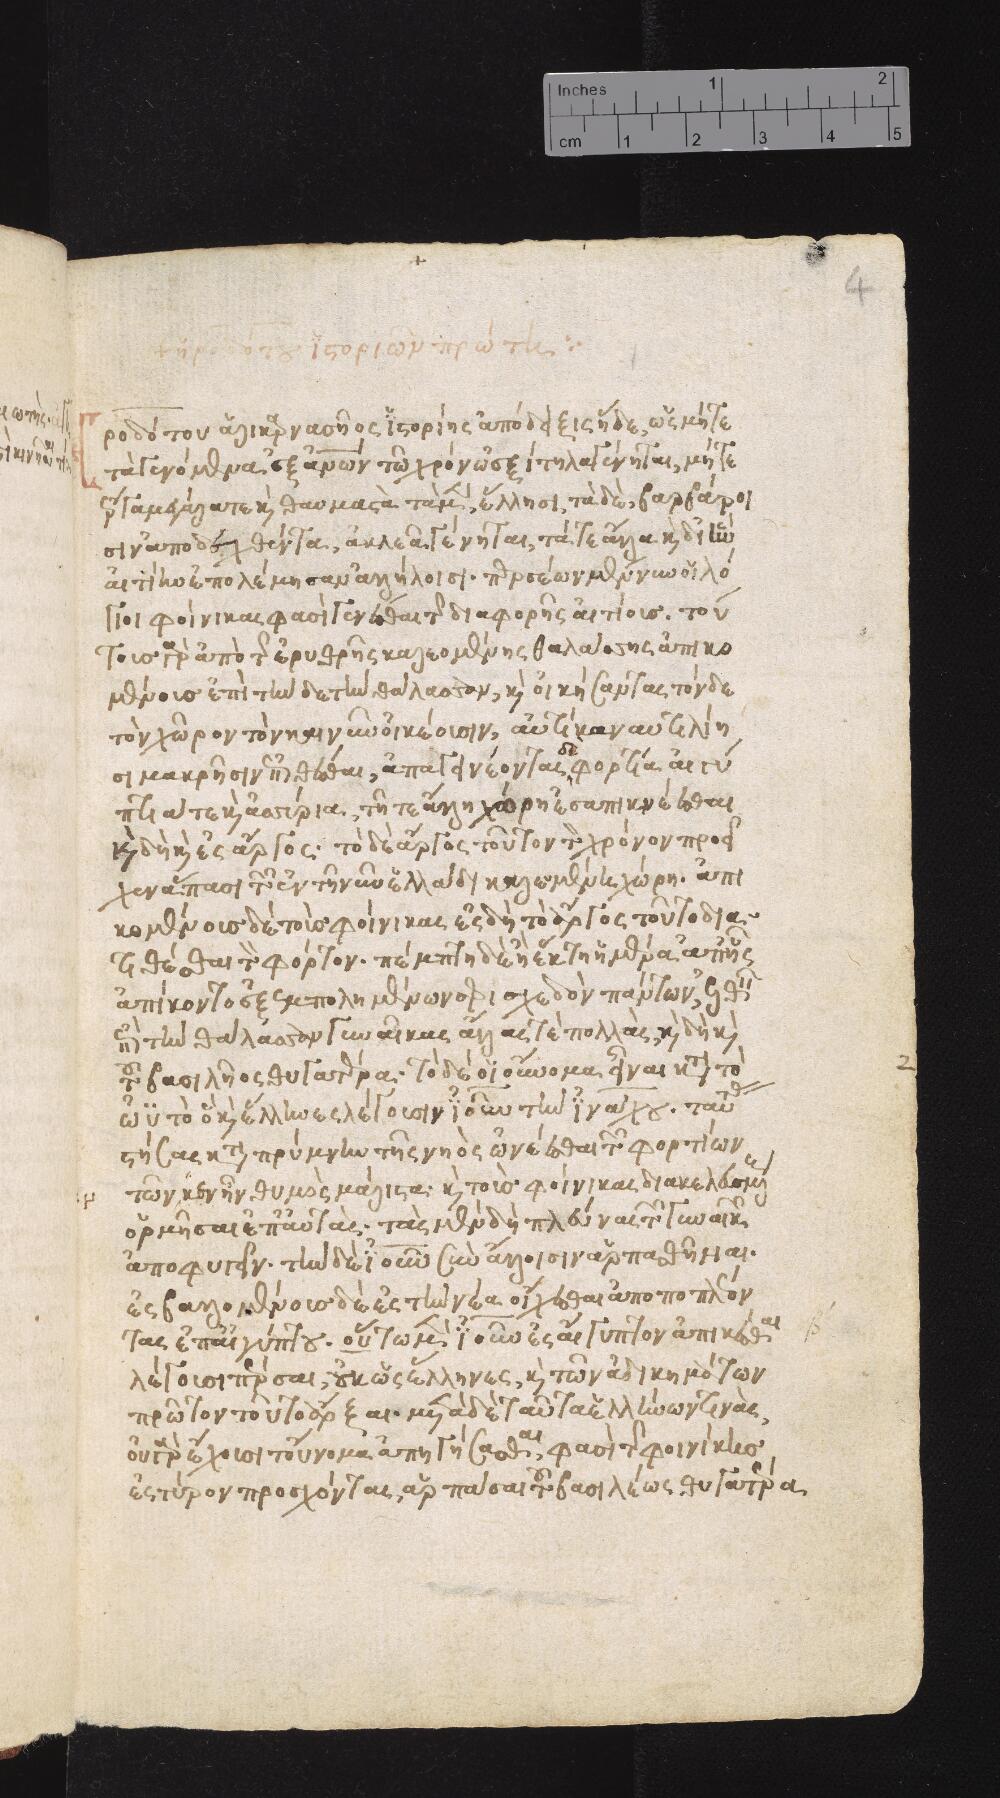 Inches 1 2
cm 1 2 3 4 5
4
+ ἡροδότου ἱστοριῶν πρώτης :·
ροδότου ἁλικαρνασῆος ἱστορίης ἀπόδεξις ἥδε, ὡς μήτε
τὰ γενόμενα ἐξ ἀνθρώπων τῷ χρόνῳ ἐξίτηλα γένηται, μήτε
ἔργα μεγάλα τε καὶ θαυμαστὰ τὰ μὲν ἕλλησι, τὰ δὲ βαρβάροι
σιν ἀποδεχθέντα, ἀκλεᾶ γένηται, τά τε ἄλλα καὶ δι' ἣν
αἰτίην ἐπολέμησαν ἀλλήλοισι. περσέων μέν νυν οἱ λό
γιοι φοίνικας φασὶ γενέσθαι τῆς διαφορῆς αἰτίους. τού
τους γὰρ ἀπὸ τῆς ἐρυθρῆς καλεομένης θαλάσσης ἀπικο
μένους ἐπὶ τήνδε τὴν θάλασσαν, καὶ οἰκήσαντας τόνδε
τὸν χῶρον τὸν καὶ νῦν οἰκέουσιν, αὐτίκα ναυτιλίη
σι μακρῇσιν ἐπιθέσθαι, ἀπαγινέοντας δὲ φορτία αἰγύ
πτιά τε καὶ ἀσσύρια, τῇ τε ἄλλῃ χώρῃ ἐσαπικνέεσθαι
καὶ δὴ καὶ ἐς ἄργος. τὸ δὲ ἄργος τοῦτον τὸν χρόνον προεῖ
χε ἅπασι τῶν ἐν τῇ νῦν ἑλλάδι καλεομένῃ χώρῃ. ἀπι
κομένους δὲ τοὺς φοίνικας ἐς δὴ τὸ ἄργος τοῦτο δια
τίθεσθαι τὸν φόρτον. πέμπτῃ δὲ ἢ ἕκτῃ ἡμέρᾳ ἀπ' ἧς
ἀπίκοντο ἐξεμπολημένων σφι σχεδὸν πάντων, ἐλθεῖν
ἐπὶ τὴν θάλασσαν γυναῖκας ἄλλας τε πολλὰς, καὶ δὴ καὶ
τοῦ βασιλῆος θυγατέρα. τὸ δέ οἱ οὔνομα εἶναι κατὰ τὸ
ὠϋτὸ ὃ καὶ ἕλληνες λέγουσιν ἰοῦν τὴν ἰνάχου. ταύτας
στήσας κατὰ πρύμνην τῆς νηὸς ὠνέεσθαι τῶν φορτίων
τῶν σφι ἦν θυμὸς μάλιστα. καὶ τοὺς φοίνικας διακελευσαμένους
ὁρμῆσαι ἐπ' αὐτάς. τὰς μὲν δὴ πλεῦνας τῶν γυναικῶν
ἀποφυγεῖν. τὴν δὲ ἰοῦν σὺν ἄλλῃσιν ἁρπασθῆναι.
ἐσβαλομένους δὲ ἐς τὴν νέα οἴχεσθαι ἀποπλέον
τας ἐπ' αἰγύπτου. οὕτω μὲν ἰοῦν ἐς αἴγυπτον ἀπικέσθαι
λέγουσι πέρσαι, οὐκ ὡς ἕλληνες, καὶ τῶν ἀδικημάτων
πρῶτον τοῦτο ἄρξαι. μετὰ δὲ ταῦτα ἑλλήνων τινὰς,
οὐ γὰρ ἔχουσι τοὔνομα ἀπηγήσασθαι, φασὶ τῆς φοινίκης
ἐς τύρον προσχόντας, ἁρπάσαι τοῦ βασιλέως θυγατέρα
2